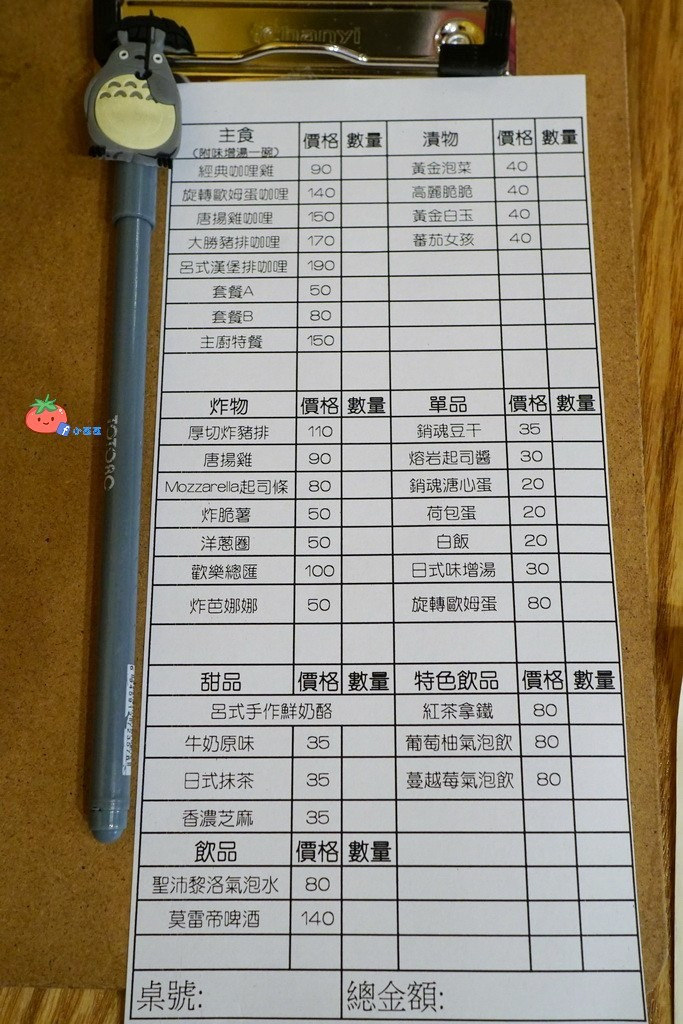 hanyi
主食 價格 數量 漬物 價格 數量
(附味增湯一碗)
經典咖哩雞 90 黃金泡菜 40
旋轉歐姆蛋咖哩 140 高麗脆脆 40
唐揚雞咖哩 150 黃金白玉 40
大勝豬排咖哩 170 蕃茄女孩 40
呂式漢堡排咖哩 190
套餐A 50
套餐B 80
主廚特餐 150
炸物 價格 數量 單品 價格 數量
厚切炸豬排 110 銷魂豆干 35
唐揚雞 90 熔岩起司醬 30
Mozzarella起司條 80 銷魂溏心蛋 20
炸脆薯 50 荷包蛋 20
洋蔥圈 50 白飯 20
歡樂總匯 100 日式味增湯 30
炸芭娜娜 50 旋轉歐姆蛋 80
甜品 價格 數量 特色飲品 價格 數量
呂式手作鮮奶酪 紅茶拿鐵 80
牛奶原味 35 葡萄柚氣泡飲 80
日式抹茶 35 蔓越莓氣泡飲 80
香濃芝麻 35
飲品 價格 數量
聖沛黎洛氣泡水 80
莫雷帝啤酒 140
桌號: 總金額:
TOTORO
f